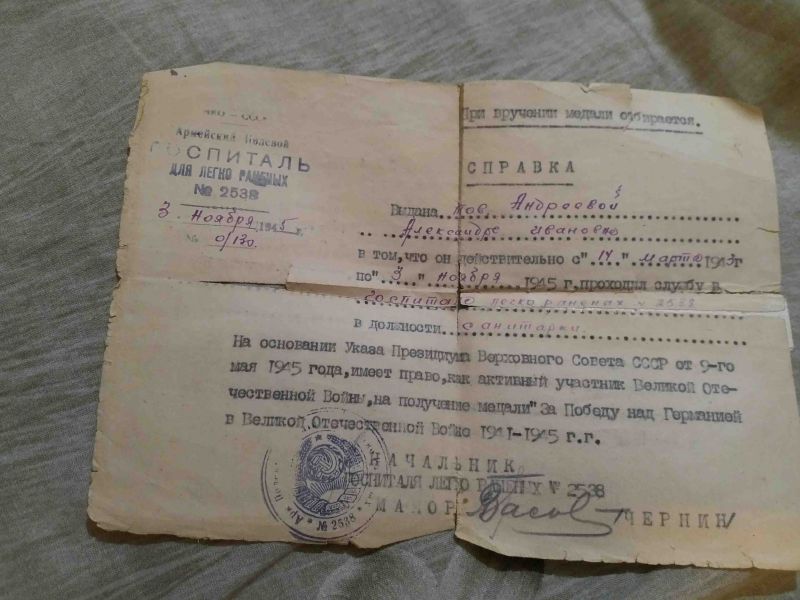 НКО – СССР
Армейский Полевой
ГОСПИТАЛЬ
ДЛЯ ЛЕГКО РАНЕНЫХ
№ 2538
3. Ноября 1945 г.
№ 0/130
При вручении медали отбирается.
СПРАВКА
Выдана тов. Андреевой
Александре Ивановне
в том, что он действительно с "14" марта 1943г
по "3" ноября 1945 г. проходил службу в
Госпитале леско раненах № 2538
в должности санитарки
На основании Указа Президиума Верховного Совета СССР от 9-го
мая 1945 года, имеет право, как активный участник Великой Оте-
чественной Войны, на получение медали "За Победу над Германией
в Великой Отечественной Войне 1941-1945 г.г.
НАЧАЛЬНИК
ГОСПИТАЛЯ ЛЕГКО РАНЕНЫХ № 2538
МАЙОР /ЧЕРНИН/
№ 2538